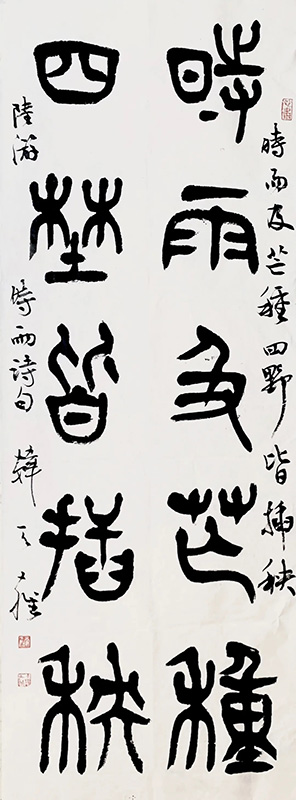 時雨及芒種四野皆插秧
時雨及芒種
四埜皆插秧
陸游 時雨詩句 韓天雍